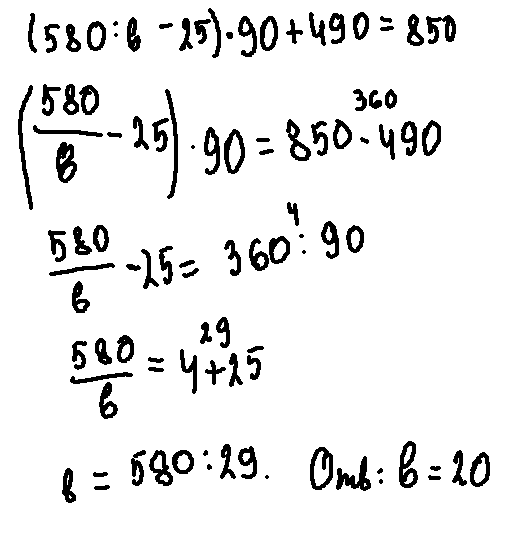 (580:в - 25)·90+490=850
360
(580/в - 25)·90=850-490
4
580/в - 25= 360:90
29
580/в = 4+25
в = 580:29. Отв: в=20